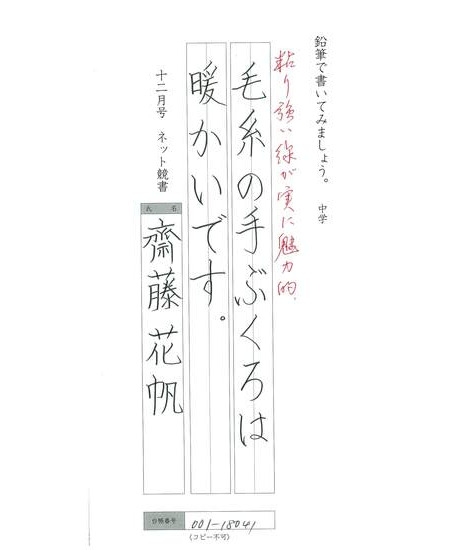 鉛筆で書いてみましょう。 中学
粘り強い線が実に魅力的
毛糸の手ぶくろは
暖かいです。
十二月号 ネット競書
氏名
齋藤花帆
台帳番号 001-18041
(コピー不可)